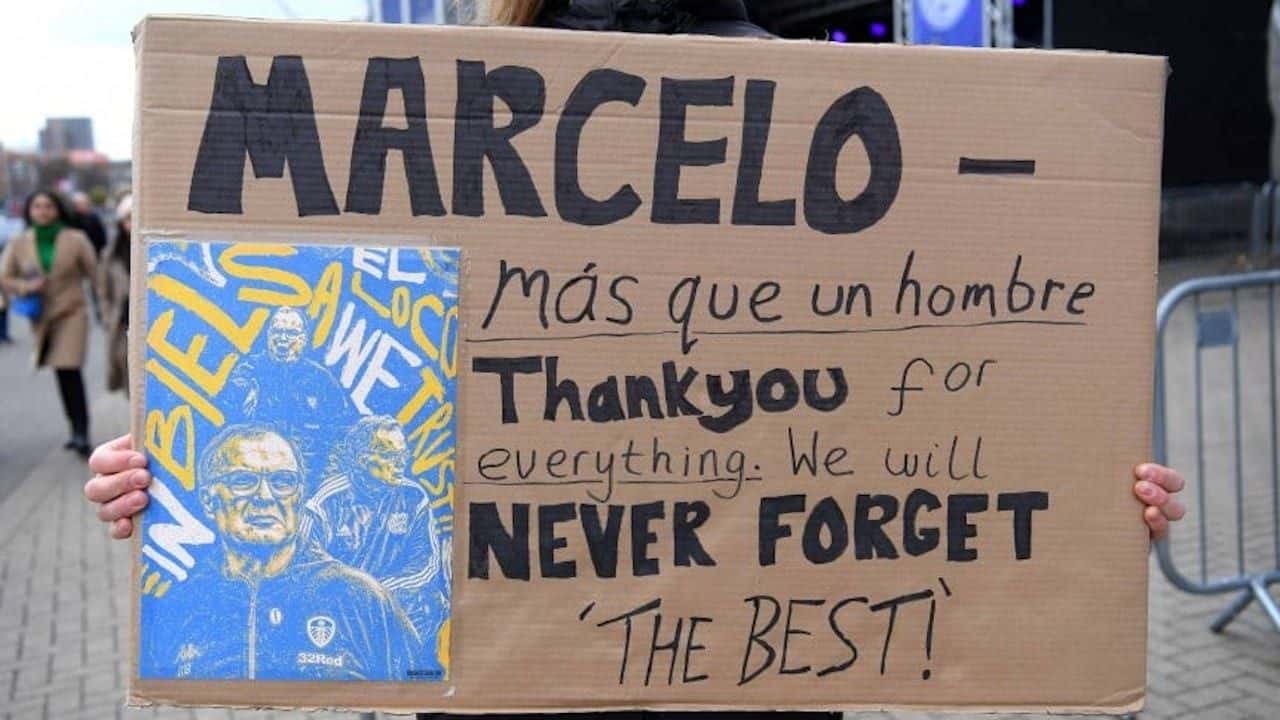 MARCELO –
Más que un hombre
Thankyou for
everything. We will
NEVER FORGET
'THE BEST!'
"IN BIELSA WE TRUST"
EL LOCO
32Red